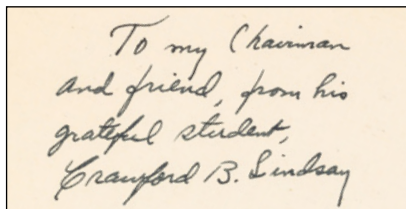 To my Chairman
and friend, from his
grateful student,
Crawford B. Lindsay